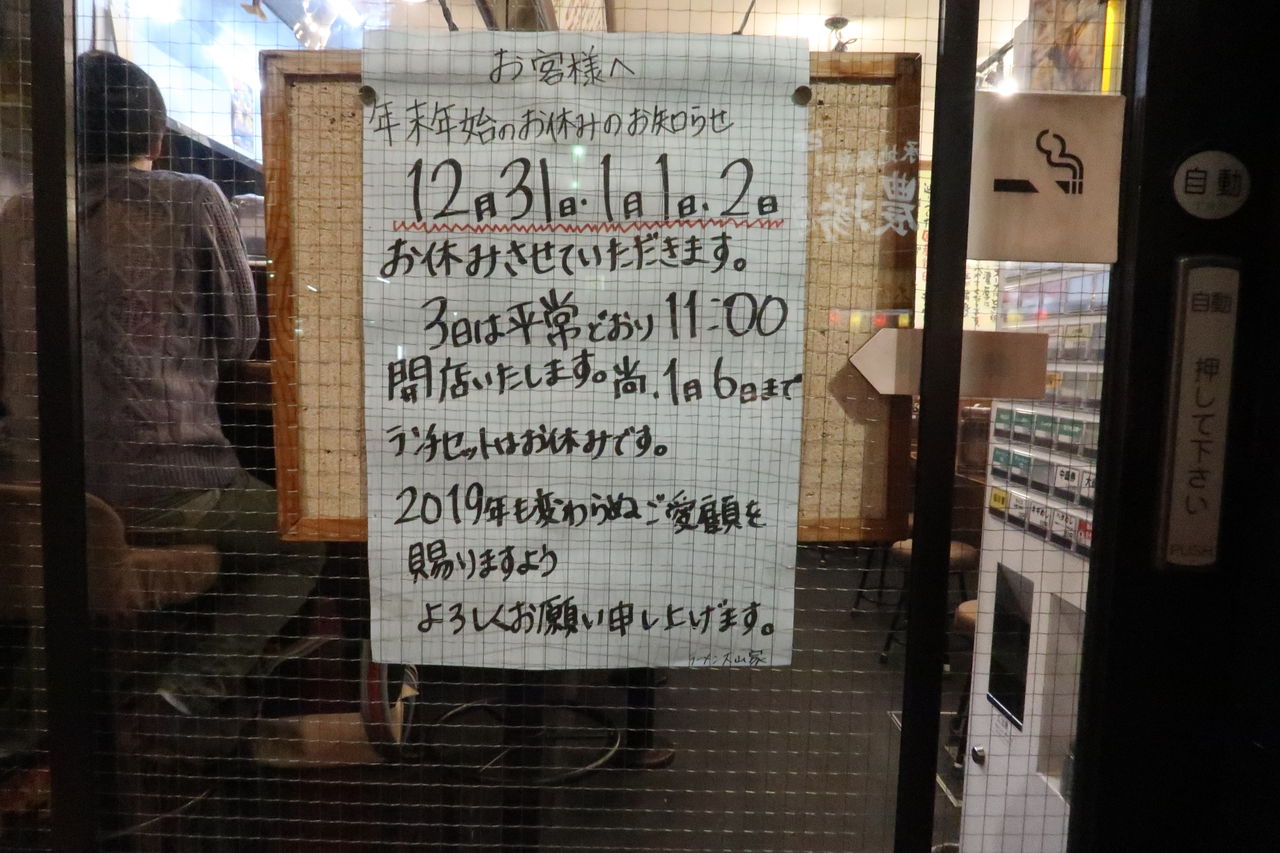 お客様へ
年末年始のお休みのお知らせ
12月31日・1月1日・2日
お休みさせていただきます。
3日は平常どおり11:00
開店いたします。尚、1月6日まで
ランチセットはお休みです。
2019年も変わらぬご愛顧を
賜りますよう
よろしくお願い申し上げます。
ラーメン大山家
自動
自動
押して下さい
PUSH